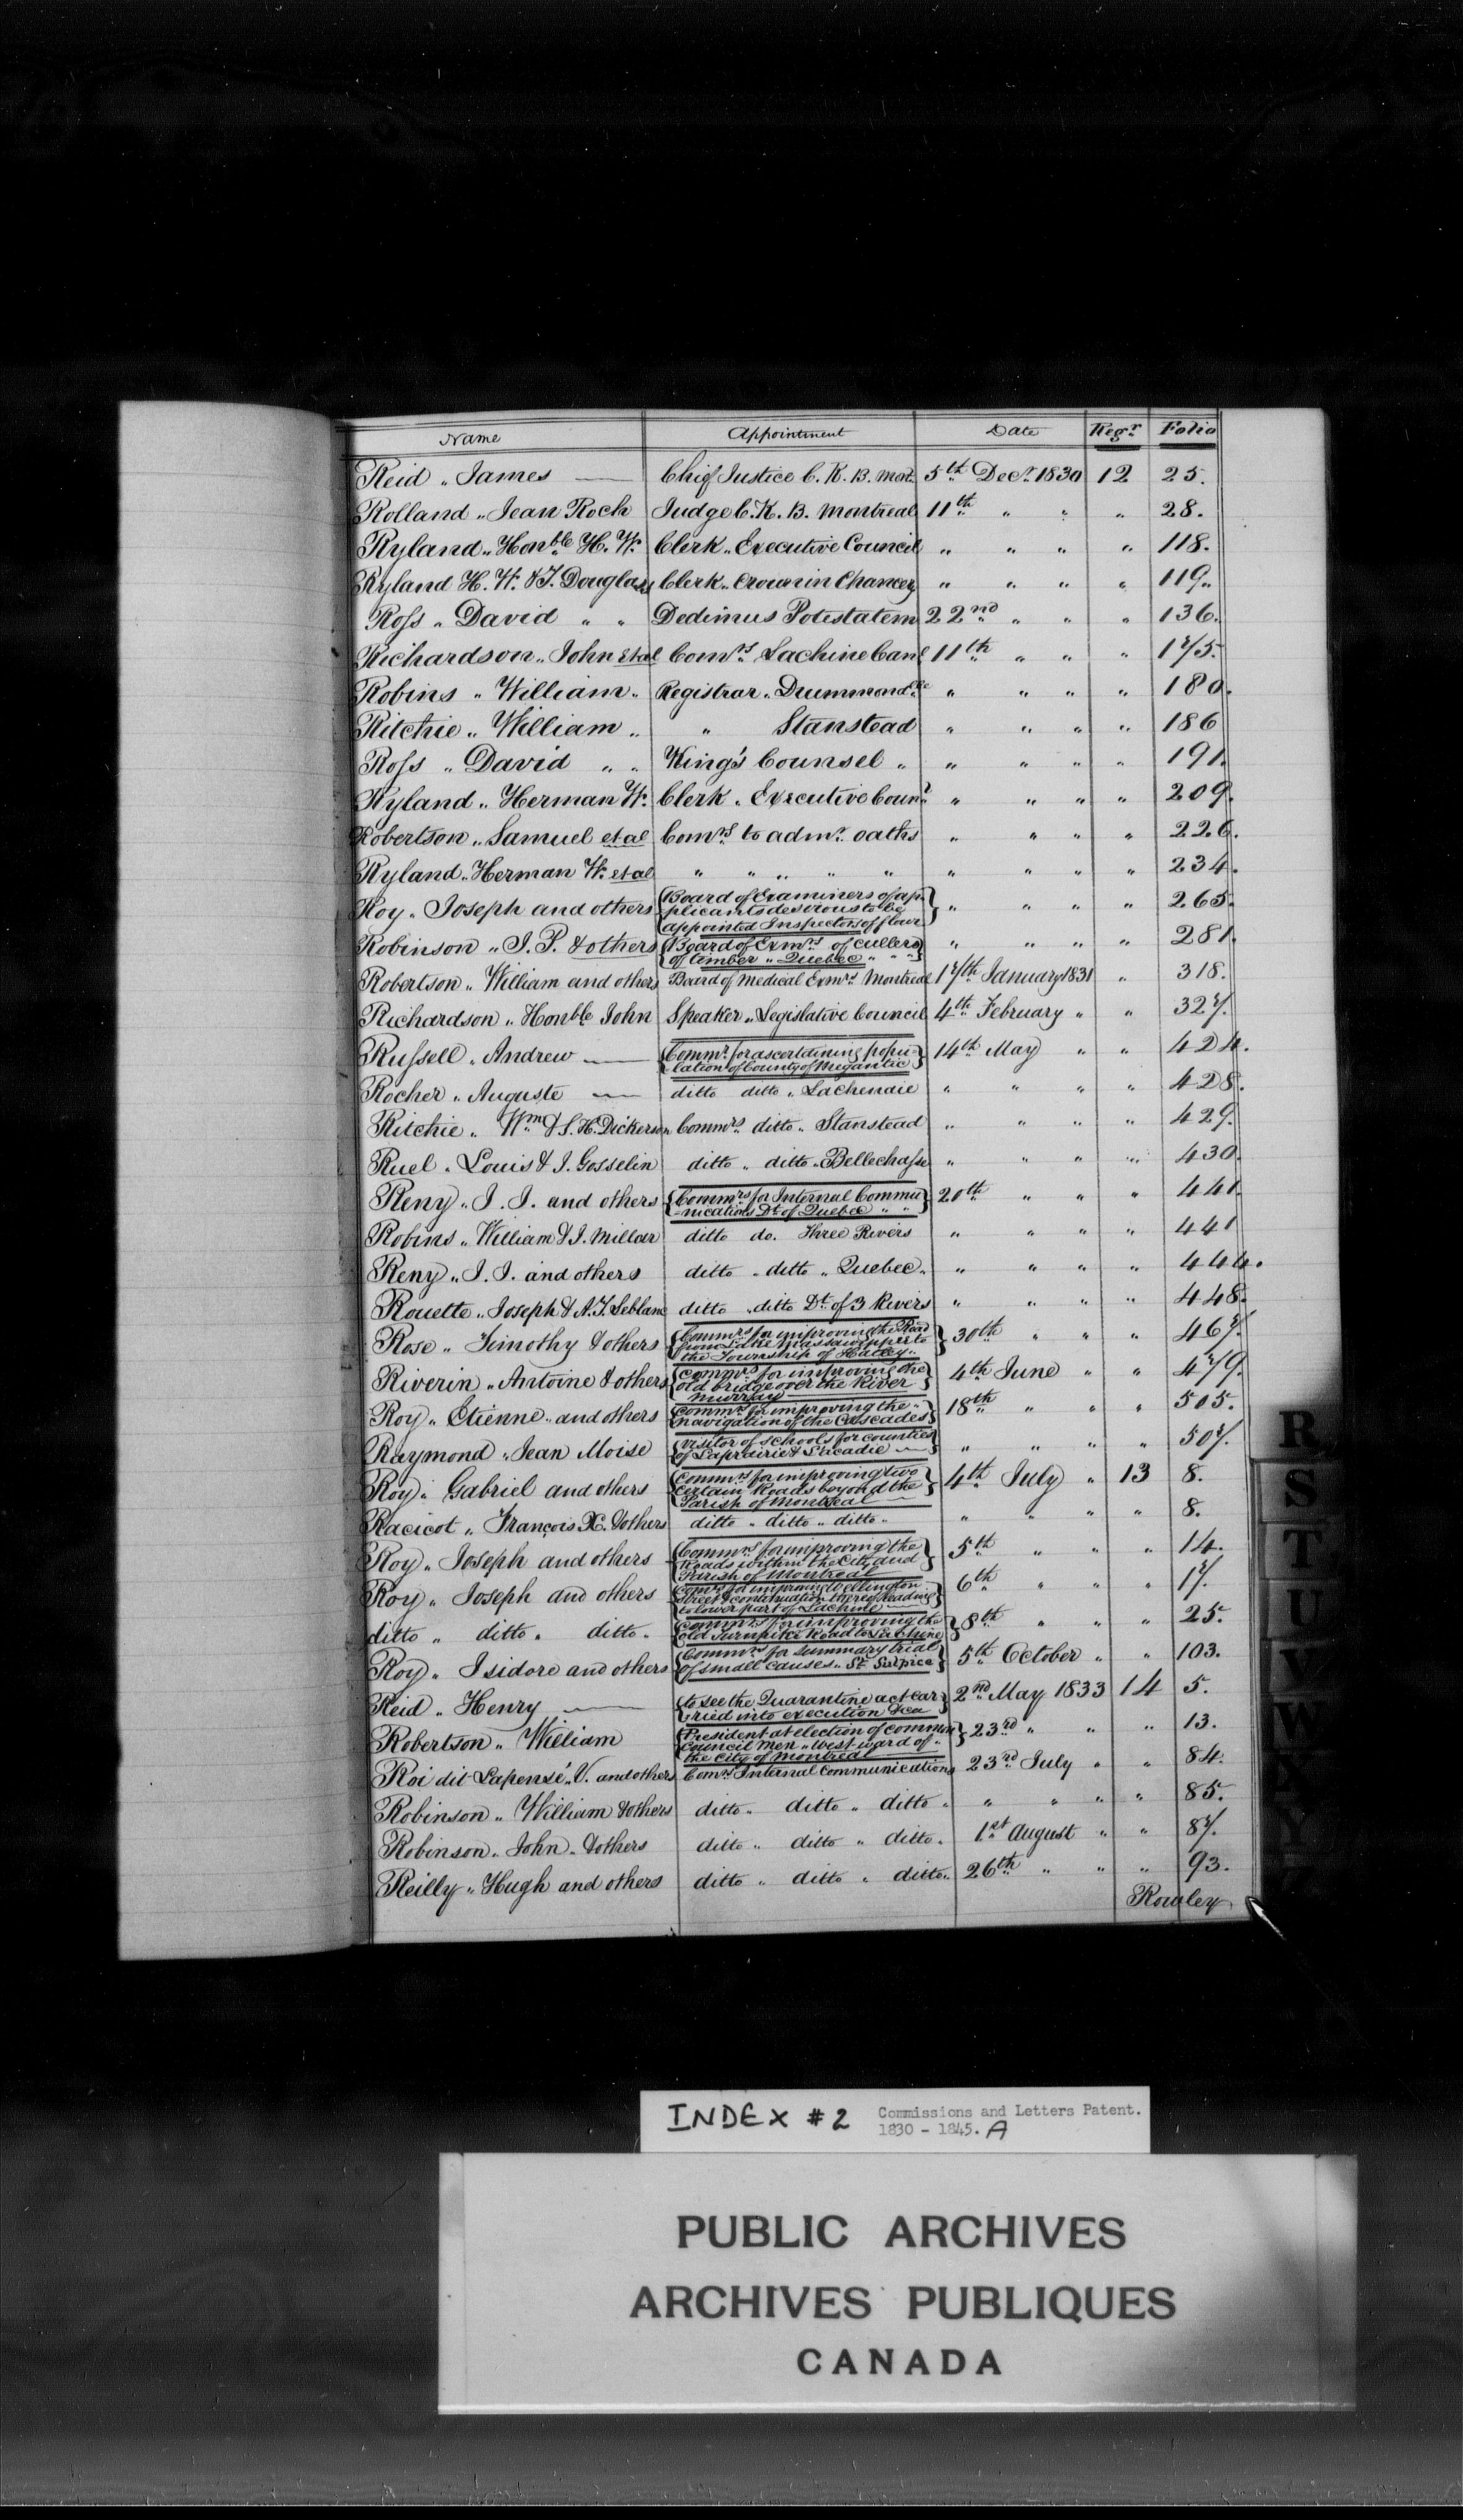 Name Appointment Date Regr. Folio
Reid „ James — Chief Justice C. K. B. Mont. 5th Decr. 1830 12 25.
Rolland „ Jean Roch Judge C. K. B. Montreal 11th „ „ „ 28.
Ryland „ Honble. H. W. Clerk „ Executive Council „ „ „ „ 118.
Ryland H. W. & T. Douglass Clerk „ Crown in Chancey „ „ „ „ 119.
Ross „ David „ „ Dedimus Potestatem 22nd „ „ „ 136.
Richardson „ John et al Comrs. Lachine Canl 11th „ „ „ 175.
Robins „ William „ Registrar „ Drummondlle „ „ „ „ 180.
Ritchie „ William „ „ Stanstead „ „ „ „ 186
Ross „ David „ „ King's Counsel „ „ „ „ „ 191.
Ryland „ Herman W. Clerk „ Executive Counl „ „ „ „ 209.
Robertson „ Samuel et al Comrs. to admr. oaths „ „ „ „ 226.
Ryland „ Herman W. et al „ „ „ „ „ „ „ „ „ 234.
Roy „ Joseph and others {Board of Examiners of ap-
plicants desirous to be } „ „ „ „ 265.
appointed Inspectors of flour
Robinson „ J. P. & others {Board of Exmrs. of cullers „ „ „ „ 281.
of timber „ Quebec „ „ „}
Robertson „ William and others Board of Medical Exmrs. Montreal 17th January 1831 „ 318.
Richardson „ Honble. John Speaker „ Legislative Council 4th February „ „ 327.
Russell „ Andrew — {Commr. for ascertaining popu-} 14th May „ „ 424.
lation of County of Megantic
Rocher „ Auguste — ditto ditto „ Lachenaie „ „ „ „ 428.
Ritchie „ Wm. & S. H. Dickerson Commrs. ditto „ Stanstead „ „ „ „ 429.
Ruel „ Louis & J. Gosselin ditto „ ditto „ Bellechasse „ „ „ „ 430.
Reny „ J. J. and others {Commrs. for Internal Commu-} 20th „ „ „ 441.
nications Dt. of Quebec „ „
Robins „ William & J. Millar ditto do. Three Rivers „ „ „ „ 441
Reny „ J. J. and others ditto „ ditto „ Quebec „ „ „ „ „ 444.
Rouette „ Joseph & A. T. Leblanc ditto „ ditto Dt. of 3 Rivers „ „ „ „ 448.
Rose „ Timothy & others {Commrs. for improving the Road
from Lake Massawippi to } 30th „ „ „ 467.
the Township of Hatley „
Riverin „ Antoine & others {Commrs. for improving the
old bridge over the River } 4th June „ „ 479.
Murray —
Roy „ Etienne „ and others {Commrs. for improving the „ 18th „ „ „ 505.
navigation of the Cascades}
Raymond „ Jean Moise {Visitor of Schools for counties „ „ „ „ 507.
of Laprairie & L'acadie —}
Roy „ Gabriel and others {Commrs. for improving two
certain Roads beyond the } 4th July „ 13 8.
Parish of Montreal —
Racicot „ François X. & others ditto „ ditto „ ditto „ „ „ „ „ 8.
Roy „ Joseph and others {Commrs. for improving the
Roads within the City and } 5th „ „ „ 14.
Parish of Montreal
Roy „ Joseph and others {Comrs. for improving Wellington
Street & continuation thereof leading} 6th „ „ „ 17.
to lower part of Lachine —
ditto „ ditto „ ditto „ {Commrs. for improving the
old Turnpike Road to Lachine} 8th „ „ „ 25.
Roy „ Isidore and others {Commrs. for summary trial
of small causes „ St. Sulpice} 5th October „ „ 103.
Reid „ Henry — {to see the Quarantine act car-} 2nd May 1833 14 5.
ried into execution &ca
Robertson „ William {President at election of common
council men „ west ward of „ } 23rd „ „ „ 13.
the City of Montreal —
Roi dit Lapensé „ V. and others Comrs. Internal Communications 23rd July „ „ 84.
Robinson „ William & others ditto „ ditto „ ditto „ „ „ „ „ 85.
Robinson „ John „ & others ditto „ ditto „ ditto „ 1st August „ „ 87.
Reilly „ Hugh and others ditto „ ditto „ ditto „ 26th „ „ „ 93.
Rowley
R
S
T
U
V
W
X
Y
INDEX #2 Commissions and Letters Patent.
1830 - 1845. A
PUBLIC ARCHIVES
ARCHIVES PUBLIQUES
CANADA